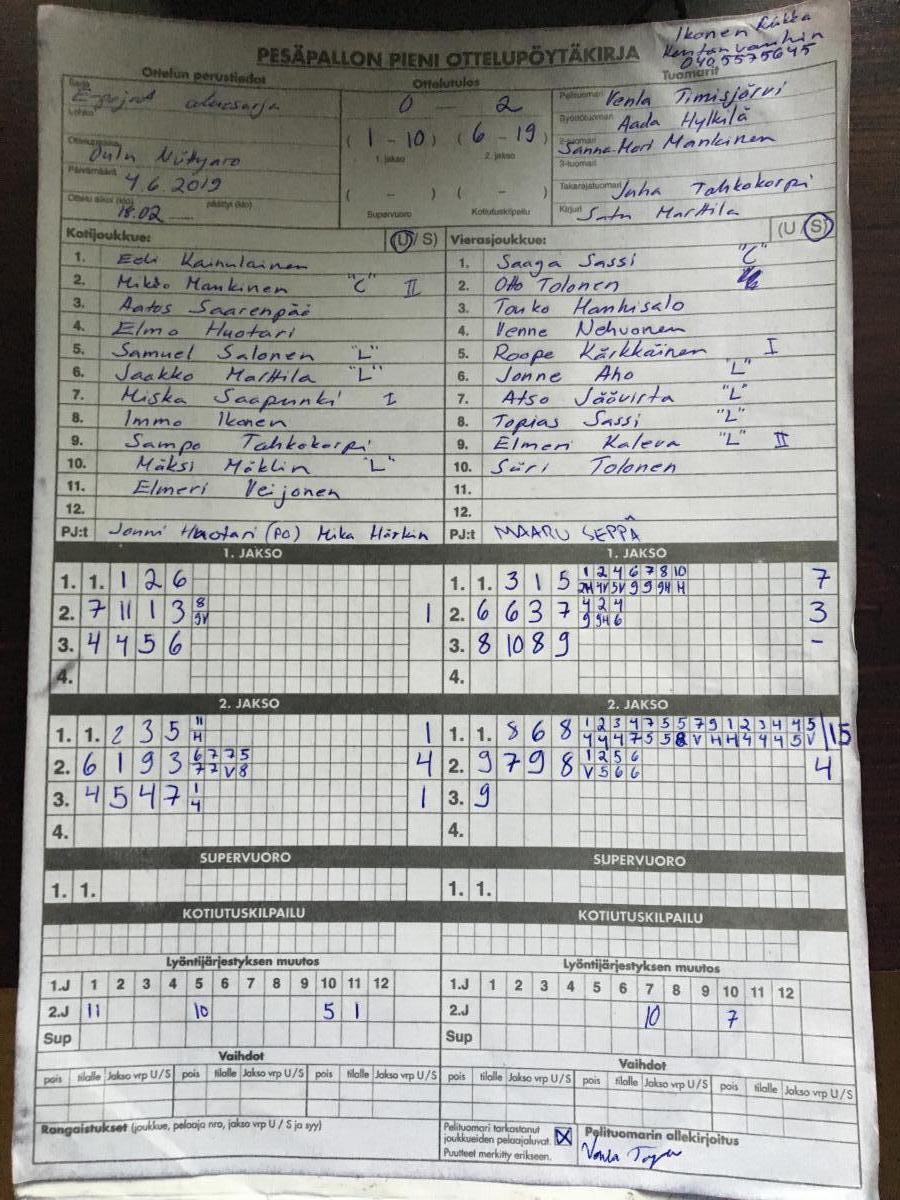 Ikonen Riikka
Kentän vanhin
040 5575645
PESÄPALLON PIENI OTTELUPÖYTÄKIRJA
Ottelun perustiedot Ottelutulos Tuomarit
Sarja aluesarja 0 - 2 Pelituomari Venla Timisjärvi
Lohko Syöttötuomari Aada Hylkilä
Ottelupaikka Oulu ( 1 - 10 ) ( 6 - 19 ) 2-tuomari Sanna-Mari Mankinen
1. jakso 2. jakso 3-tuomari
Päivämäärä 4.6.2019 ( - ) ( - ) Takarajatuomari Juha Tahkokorpi
Ottelu alkoi (klo) 18.02 päättyi (klo) Supervuoro Kotiutuskilpailu Kirjuri Satu Marttila
Kotijoukkue: (U / S) Vierasjoukkue: (U / S)
1. Eeli Kainulainen 1. Saaga Sassi "C"
2. Mikko Mankinen "C" II 2. Otto Tolonen
3. Aatos Saarenpää 3. Touko Hanhisalo
4. Elmo Huotari 4. Venne Nehvonen
5. Samuel Salonen "L" 5. Roope Kärkkäinen I
6. Jaakko Marttila "L" 6. Jonne Aho "L"
7. Miska Saapunki I 7. Atso Jäävirta "L"
8. Immo Ikonen 8. Topias Sassi "L"
9. Sampo Tahkokorpi 9. Elmeri Kaleva "L" II
10. Mäksi Möklin "L" 10. Siiri Tolonen
11. Elmeri Veijonen 11.
12. 12.
PJ:t Jouni Huotari (PO) Mika Härkin PJ:t MAARU SEPPÄ
1. JAKSO 1. JAKSO
1. 1. 1 2 6 1. 1. 3 1 5 1 2 4 6 7 8 10 7
2H 4V 5V 9 9 9H H
2. 7 11 1 3 8 1 2. 6 6 3 7 4 2 4 3
9V 9 9H 6
3. 4 4 5 6 3. 8 10 8 9 -
4. 4.
2. JAKSO 2. JAKSO
1. 1. 2 3 5 11 1 1. 1. 8 6 8 1 2 3 4 7 5 5 7 9 1 2 3 4 4 5 15
H 4 4 4 7 5 5 8 V H H 4 4 4 5 V
2. 6 1 9 3 6 7 7 5 4 2. 9 7 9 8 1 2 5 6 4
7 7 V 8 V 5 6 6
3. 4 5 4 7 1 1 3. 9
4
4. 4.
SUPERVUORO SUPERVUORO
1. 1. 1. 1.
KOTIUTUSKILPAILU KOTIUTUSKILPAILU
Lyöntijärjestyksen muutos Lyöntijärjestyksen muutos
1.J 1 2 3 4 5 6 7 8 9 10 11 12 1.J 1 2 3 4 5 6 7 8 9 10 11 12
2.J 11 10 5 1 2.J 10 7
Sup Sup
Vaihdot Vaihdot
pois tilalle Jakso vrp U/S pois tilalle Jakso vrp U/S pois tilalle Jakso vrp U/S pois tilalle Jakso vrp U/S pois tilalle Jakso vrp U/S pois tilalle Jakso vrp U/S
Rangaistukset (joukkue, pelaaja nro, jakso vrp U / S ja syy) Pelituomari tarkastanut Pelituomarin allekirjoitus
joukkueiden pelaajaluvat. X
Puutteet merkitty erikseen.